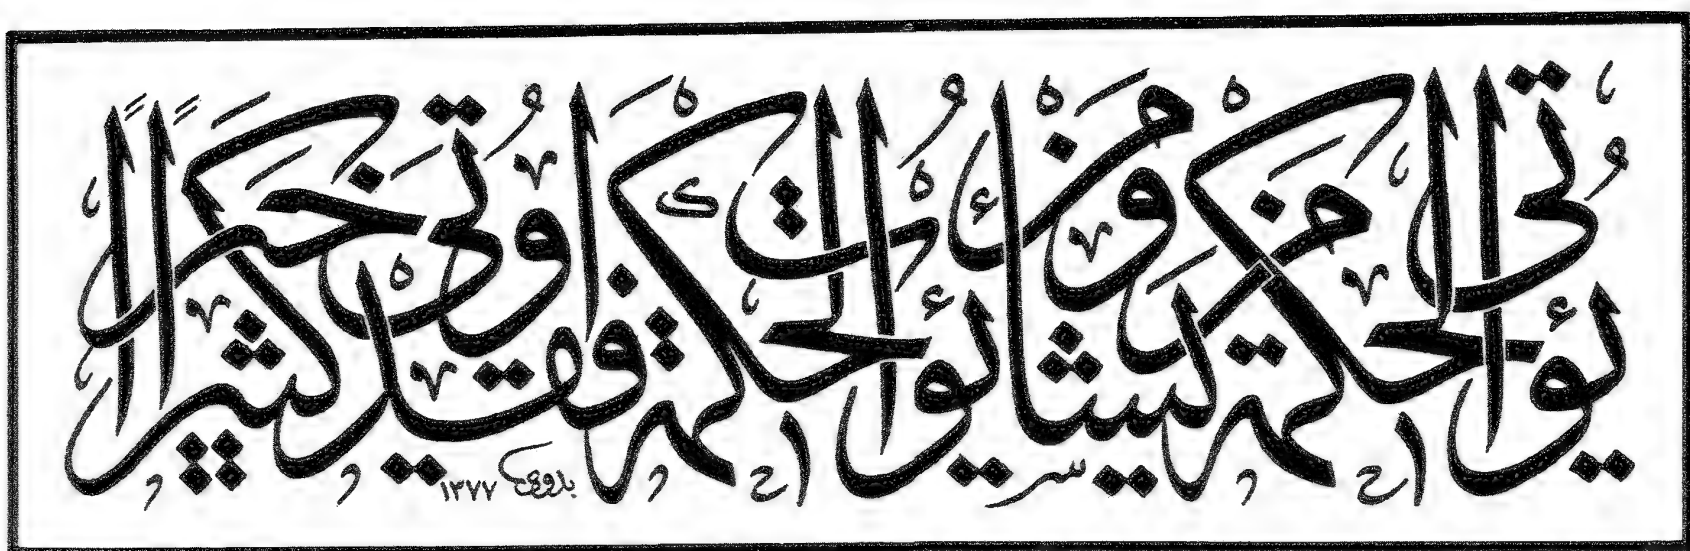 يؤتي الحكمة من يشاء ومن يؤت الحكمة فقد اوتي خيرا كثيرا
١٣٧٧